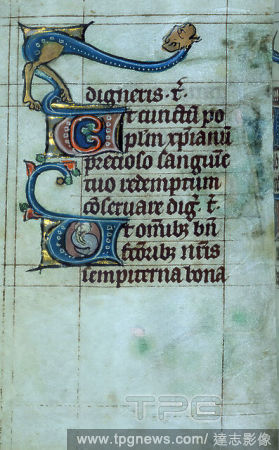 digneris · t̄·
Et cunctū po
pl̄m xp̄ianū
precioso sanguīe
tuo redemptum
cōseruare dig̅· t̅·
Et om̄ibꝫ bn̄
fc̄oribꝫ nr̄is
sempiterna bona
TPG
www.tpgnews.com/ 達志影像